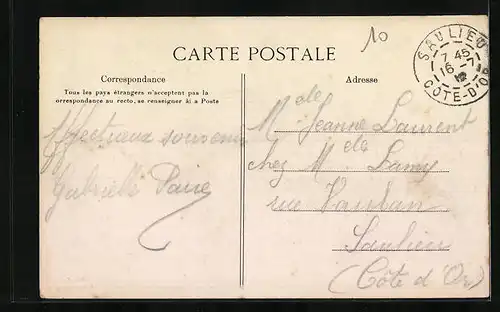 10
SAULIEU
7 45
16 -7
CÔTE-D'OR
CARTE POSTALE
Correspondance
Adresse
Tous les pays étrangers n'acceptent pas la
orrespondance au recto, se renseigner à la Poste
Affectueux souvenir
Gabrielle
Mdelle Jeanne Laurent
chez Mdelle Lamy
rue Vauban
Saulieu
(Côte d'Or)